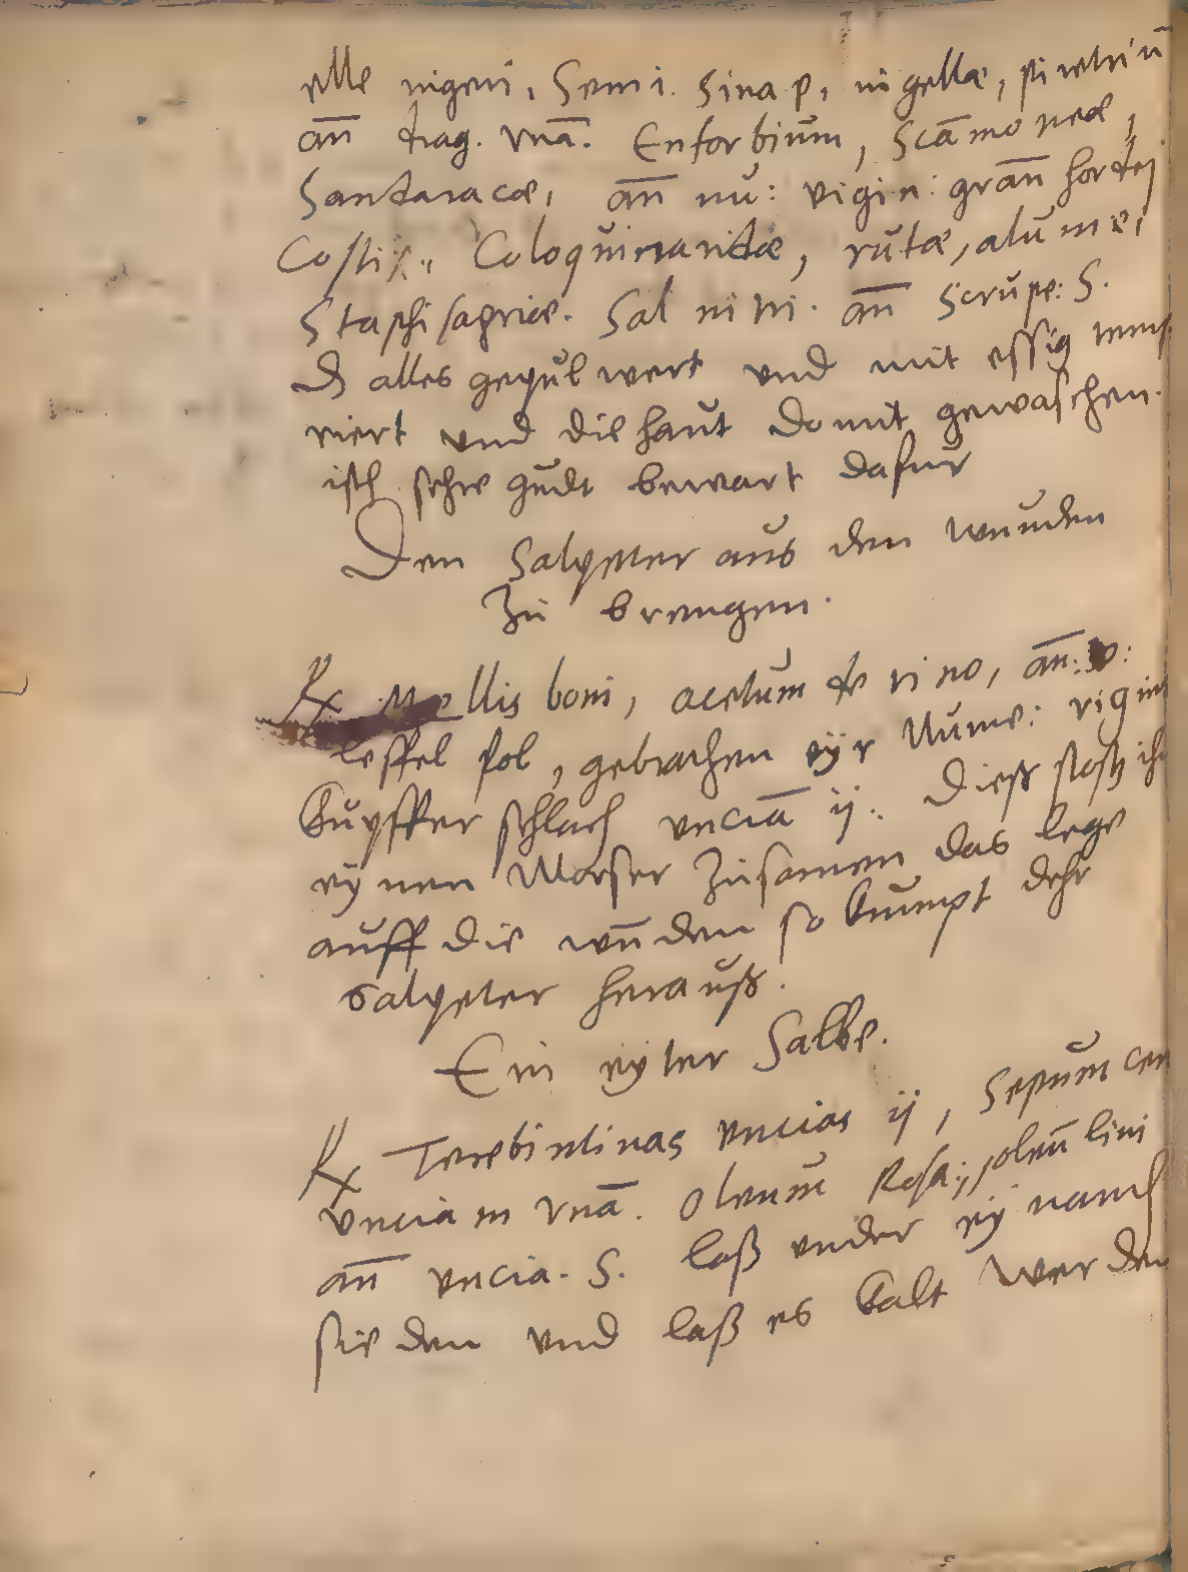 elle nigeri, Semi. Sinap, nigellæ, piretriū
an̄ drag. vnā. Enforbium, Scāmoneæ,
Sandaracæ, an̄ nu: vigin: gran̄ hordej
Costi, Coloquin, rutæ, alume,
Staphisagriæ. Sal nitri. an̄ Scrupe: S.
alles gepulwert vnd mit essig
riert vnd die haut domit gewaschen.
ist sehre gudt bewart dafur
Den Salpeter aus den wunden
Zu brengen.
℞ Mellis boni, acetum de vino, an̄:
leffel fol, gebrachen eyr Nume: vigint
kupffer schlach vnciā ij. Diess stoss ihn
eynen Morser Zusamen das lege
auff die wūden so kumpt dehr
salpeter herauß.
Ein eyter Salbe.
℞ Terebintinas vncias ij, Sepum cer
vnciam vnā. Oleum Rosa:, oleū lini
an̄ vncia. S. laß vnder eynander
sieden vnd laß es kalt werden